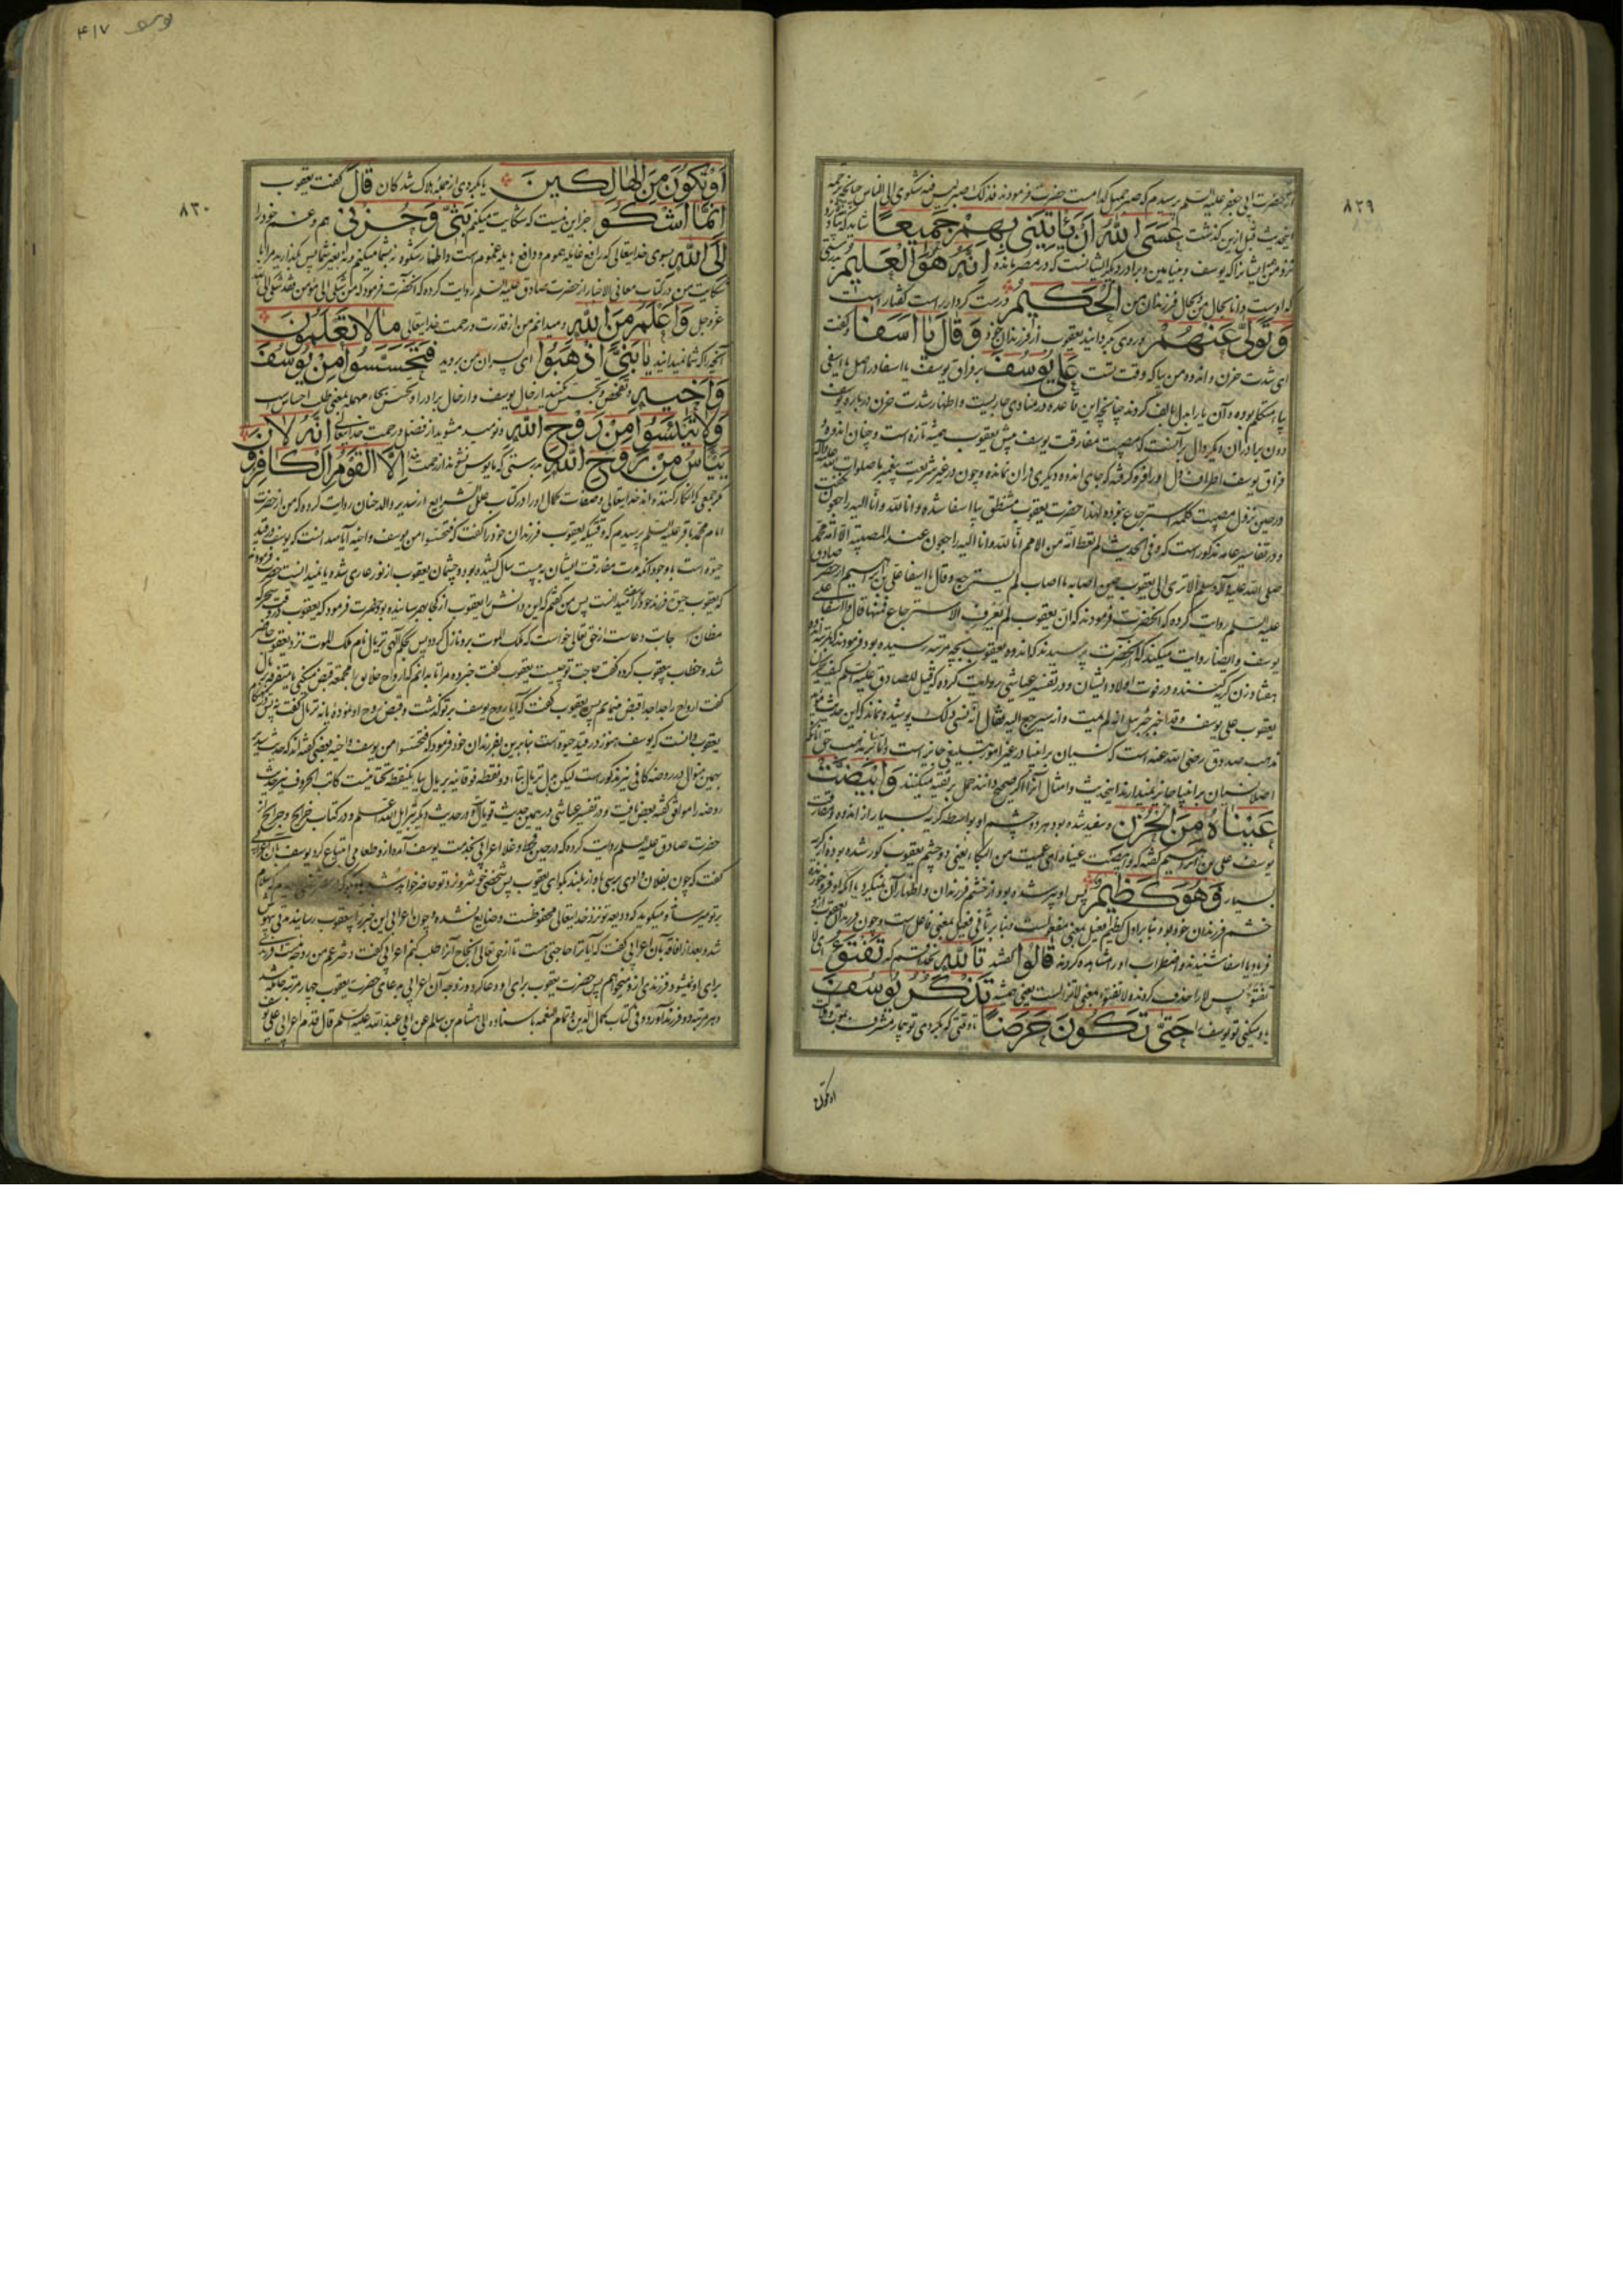 ٨٢٩
از حضرت ابی جعفر علیه السلم پرسیدم که صبر جمیل کدامست حضرت فرمودند فذلک صبر لیس فیه شکوی الی الناس چنانچه ترجمه
اینحدیث قبل ازین گذشت عَسَى اللّٰهُ اَنْ يَاْتِيَنِي بِهِمْ جَمِيعًا شاید که خدا
نزد من ایشانرا که یوسف و بنیامین و برادر دیگر ایشانست که در مصر مانده اِنَّهُ هُوَ الْعَلِيمُ بدرستی
که اوست دانا بحال من و بحال فرزندان من الْحَكِيمُ درست کردار راست گفتار است
وَتَوَلّٰى عَنْهُمْ و روی بگردانید یعقوب از فرزندان خود وَقَالَ يَا اَسَفٰا و گفت
ای شدت حزن و اندوه من بیا که وقت تست عَلٰى يُوسُفَ بر فراق یوسف یا اسفا در اصل یا اسفی
بیاء متکلم بوده و آن یا را بدل بالف کردند چنانچه این قاعده در منادی جاریست و اظهار شدت حزن درباره یوسف
دون برادران دیگر دال بر آنست که مصیبت مفارقت یوسف پیش یعقوب همیشه تازه است و چنان اندوه
فراق یوسف اطراف دل او را فرو گرفته که جای اندوه دیگری در آن نمانده و چون در غیر شریعت پیغمبر ما صلوات الله علیه وآله
در حین نزول مصیبت کلمه استرجاع نبوده لهذا حضرت یعقوب متنطق بیا اسفا شده و انا لله و انا الیه راجعون نگفت
و در تفاسیر عامه مذکور است که و فی الحدیث لم تعط امّة من الامم انّا لله و انا الیه راجعون عند المصیبة الا امّة محمد
صلی الله علیه وآله وسلم الا تری الی یعقوب حین اصابه ما اصاب لم یسترجع و قال یا اسفا علی بن ابراهیم از حضرت صادق
علیه السلم روایت کرده که آنحضرت فرمودند که انّ یعقوب لم یعرف الاسترجاع فمنها قال وا اسفا علی
یوسف و ایضا روایت میکنند که از آنحضرت پرسیدند که اندوه یعقوب بچه مرتبه رسیده بود فرمودند که بمرتبه اندوه
هفتاد زن گریه کننده در فوت اولاد ایشان و در تفسیر عیاشی روایت کرده که قیل للصادق علیه السلم کیف یحزن
یعقوب علی یوسف و قد اخبره جبرئیل انه لم یمت و انه سیرجع الیه فقال انه نسی ذلک پوشیده نماند که این حدیث مؤید
مذهب صدوق رضی الله عنه است که نسیان بر انبیا در غیر امور تبلیغی جائز است و اما بنا بر مذهب حق آنانکه
اصلا نسیان بر انبیا جائز نمیدارند اینحدیث و امثال آنرا اگر صحیح دانند حمل بر تقیه میکنند وَابْيَضَّتْ
عَيْنَاهُ مِنَ الْحُزْنِ و سفید شده بود هر دو چشم او بواسطه گریه بسیار از اندوه مفارقت
یوسف علی بن ابراهیم گفته که وابیضت عیناه ای عمیت من البکاء یعنی دو چشم یعقوب کور شده بود از گریه
بسیار فَهُوَ كَظِيمٌ پس او پر شده بود از خشم فرزندان و اظهار آن نمیکرد یا آنکه او فرو خورنده
خشم فرزندان خود بود و بنا بر اول کظیم فعیل بمعنی مفعولست و بنا بر ثانی فعیل بمعنی فاعل است و چون فرزندان یعقوب ازو
فریاد یا اسفا شنیدند و اضطراب او را مشاهده کردند قَالُوا گفتند تَاللّٰهِ بخدا قسم که تَفْتَؤُ ای لا
تفتؤ پس لا را حذف کردند و لا تفتؤ بمعنی لاتزالست یعنی همیشه تَذْكُرُ يُوسُفَ
یاد میکنی تو یوسف را حَتّٰى تَكُونَ حَرَضًا تا وقتی که بگردی تو بیمار مشرف بموت
او تکون
یوسف ۴١٧
٨٣٠
اَوْ تَكُونَ مِنَ الْهَالِكِينَ یا بگردی از جمله هلاک شدگان قَالَ گفت یعقوب
اِنَّمَا اَشْكُو جز این نیست که شکایت میکنم بَثِّي وَحُزْنِي هم و غم خود را
اِلَى اللّٰهِ بسوی خدایتعالی که رافع غایله هموم و دافع غموم است و اظهار شکوه نه بشما میکنم و نه بغیر شما پس بگذارید مرا با
شکایت من در کتاب معانی الاخبار از حضرت صادق علیه السلم روایت کرده که آنحضرت فرمود که من شکی الی مؤمن فقد شکی الی الله
عزوجل وَاَعْلَمُ مِنَ اللّٰهِ و میدانم من از قدرت و رحمت خدایتعالی مَا لَا تَعْلَمُونَ
آنچه را که شما نمیدانید يَا بَنِيَّ اذْهَبُوا ای پسران من بروید فَتَحَسَّسُوا مِنْ يُوسُفَ
وَاَخِيهِ و تفحص و تجسس کنید از حال یوسف و از حال برادر او تحسس بحاء مهمله بمعنی طلب احساس است
وَلَا تَيْئَسُوا مِنْ رَوْحِ اللّٰهِ و نومید مشوید از فضل و رحمت خدایتعالی اِنَّهُ لَا
يَيْاَسُ مِنْ رَوْحِ اللّٰهِ بدرستی که مایوس نشوند از رحمت خدا اِلَّا الْقَوْمُ الْكَافِرُونَ
مگر جمعی که انکار کننده اند خدایتعالی و صفات کمال او را در کتاب علل الشرایع از سدیر والد حنان روایت کرده که من از حضرت
امام محمد باقر علیه السلم پرسیدم که وقتیکه یعقوب فرزندان خود را گفت که فتحسسوا من یوسف و اخیه آیا میدانست که یوسف در قید
حیوة است با وجود آنکه مدت مفارقت ایشان به بیست سال کشیده بود و چشمان یعقوب از نور عاری شده یا نمیدانست حضرت فرمودند
که یعقوب حیوة فرزند خود را میدانست پس من گفتم که این دانش را یعقوب از کجا بهم رسانیده بود حضرت فرمود که یعقوب در وقت سحر که
مظان اجابت دعاست از حق تعالی خواست که ملک الموت برو نازل گردد پس بحکم الهی تریال نام ملک الموت نزد یعقوب حاضر
شده خطاب بیعقوب کرده گفت حاجت تو چیست یعقوب گفت خبر ده مرا تا بدانم که ارواح خلایق را مجتمعه قبض میکنی یا متفرقه تریال
گفت ارواح را جدا جدا قبض مینمایم پس یعقوب گفت که آیا روح یوسف بر تو گذشت و قبض روح او نموده یا نه تریال گفت نه پس
یعقوب دانست که یوسف هنوز در قید حیوة است بنابرین بفرزندان خود فرمود که فتحسسوا من یوسف و اخیه بعضی گفته اند که حدیث سدیر
بهمین منوال در روضه کافی نیز مذکور است لیکن بدل تریال بتاء دو نقطه فوقانیه بریال بباء یکنقطه تحتانیست کاتب الحروف نیز حدیث
روضه را موافق گفته بعض یافت و در تفسیر عیاشی در همین حدیث قوبال و در حدیث دیگر تبرایل الله اعلم و در کتاب خرایج و جرایح از
حضرت صادق علیه السلم روایت کرده که در حین قحط و غلا اعرابی بخدمت یوسف آمد و ازو طعامی ابتیاع کرد یوسف بآن اعرابی
گفت که چون بفلان وادی برسی بآواز بلند بگو ای یعقوب پس شخصی خوش رو نزد تو حاضر خواهد شد
بر تو میرساند و میگوید که ودیعه تو نزد خدایتعالی محفوظست و ضایع نشده و چون اعرابی این خبر را بیعقوب رسانید مدتی بیهوش
شد و بعد از افاقه بآن اعرابی گفت که آیا ترا حاجتی هست تا از حق تعالی انجاح آنرا طلب کنم اعرابی گفت دختر عم من زوجه منست و فرزندی
برای او نمیشود فرزندی ازو میخواهم پس حضرت یعقوب برای او دعا کرد و زوجه آن اعرابی بدعای حضرت یعقوب چهار مرتبه حامله شد
و هر مرتبه دو فرزند آورد و فی کتاب کمال الدین و تمام النعمه باسناده الی هشام بن سالم عن ابی عبد الله علیه السلم قال قدم اعرابی علی یوسف